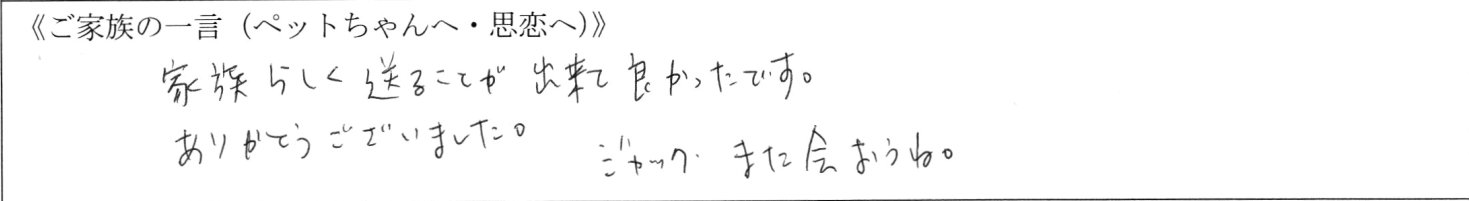 《ご家族の一言（ペットちゃんへ・思恋へ）》
家族らしく送ることが出来て良かったです。
ありがとうございました。
ジャック また会おうね。